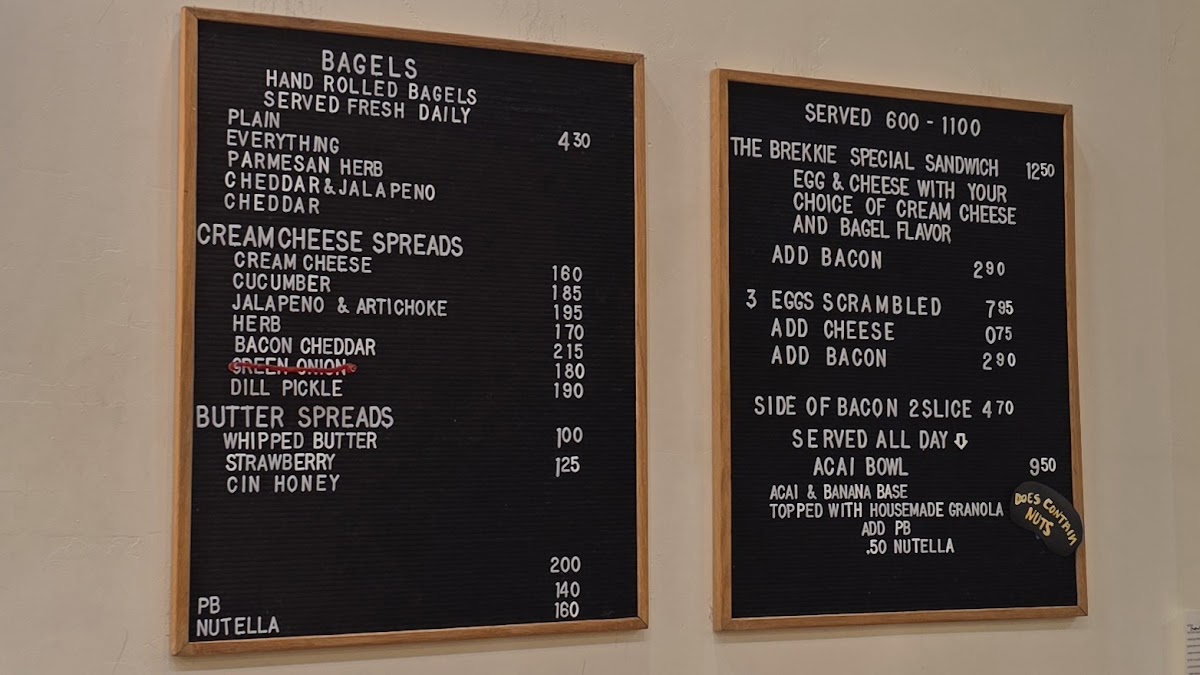 BAGELS
HAND ROLLED BAGELS
SERVED FRESH DAILY
PLAIN
EVERYTHING 430
PARMESAN HERB
CHEDDAR & JALAPENO
CHEDDAR
CREAM CHEESE SPREADS
CREAM CHEESE 160
CUCUMBER 185
JALAPENO & ARTICHOKE 195
HERB 170
BACON CHEDDAR 215
GREEN ONION 180
DILL PICKLE 190
BUTTER SPREADS
WHIPPED BUTTER 100
STRAWBERRY 125
CIN HONEY
200
140
PB 160
NUTELLA
SERVED 600 - 1100
THE BREKKIE SPECIAL SANDWICH 1250
EGG & CHEESE WITH YOUR
CHOICE OF CREAM CHEESE
AND BAGEL FLAVOR
ADD BACON 290
3 EGGS SCRAMBLED 795
ADD CHEESE 075
ADD BACON 290
SIDE OF BACON 2 SLICE 470
SERVED ALL DAY
ACAI BOWL 950
ACAI & BANANA BASE
TOPPED WITH HOUSEMADE GRANOLA
ADD PB
.50 NUTELLA
DOES CONTAIN
NUTS